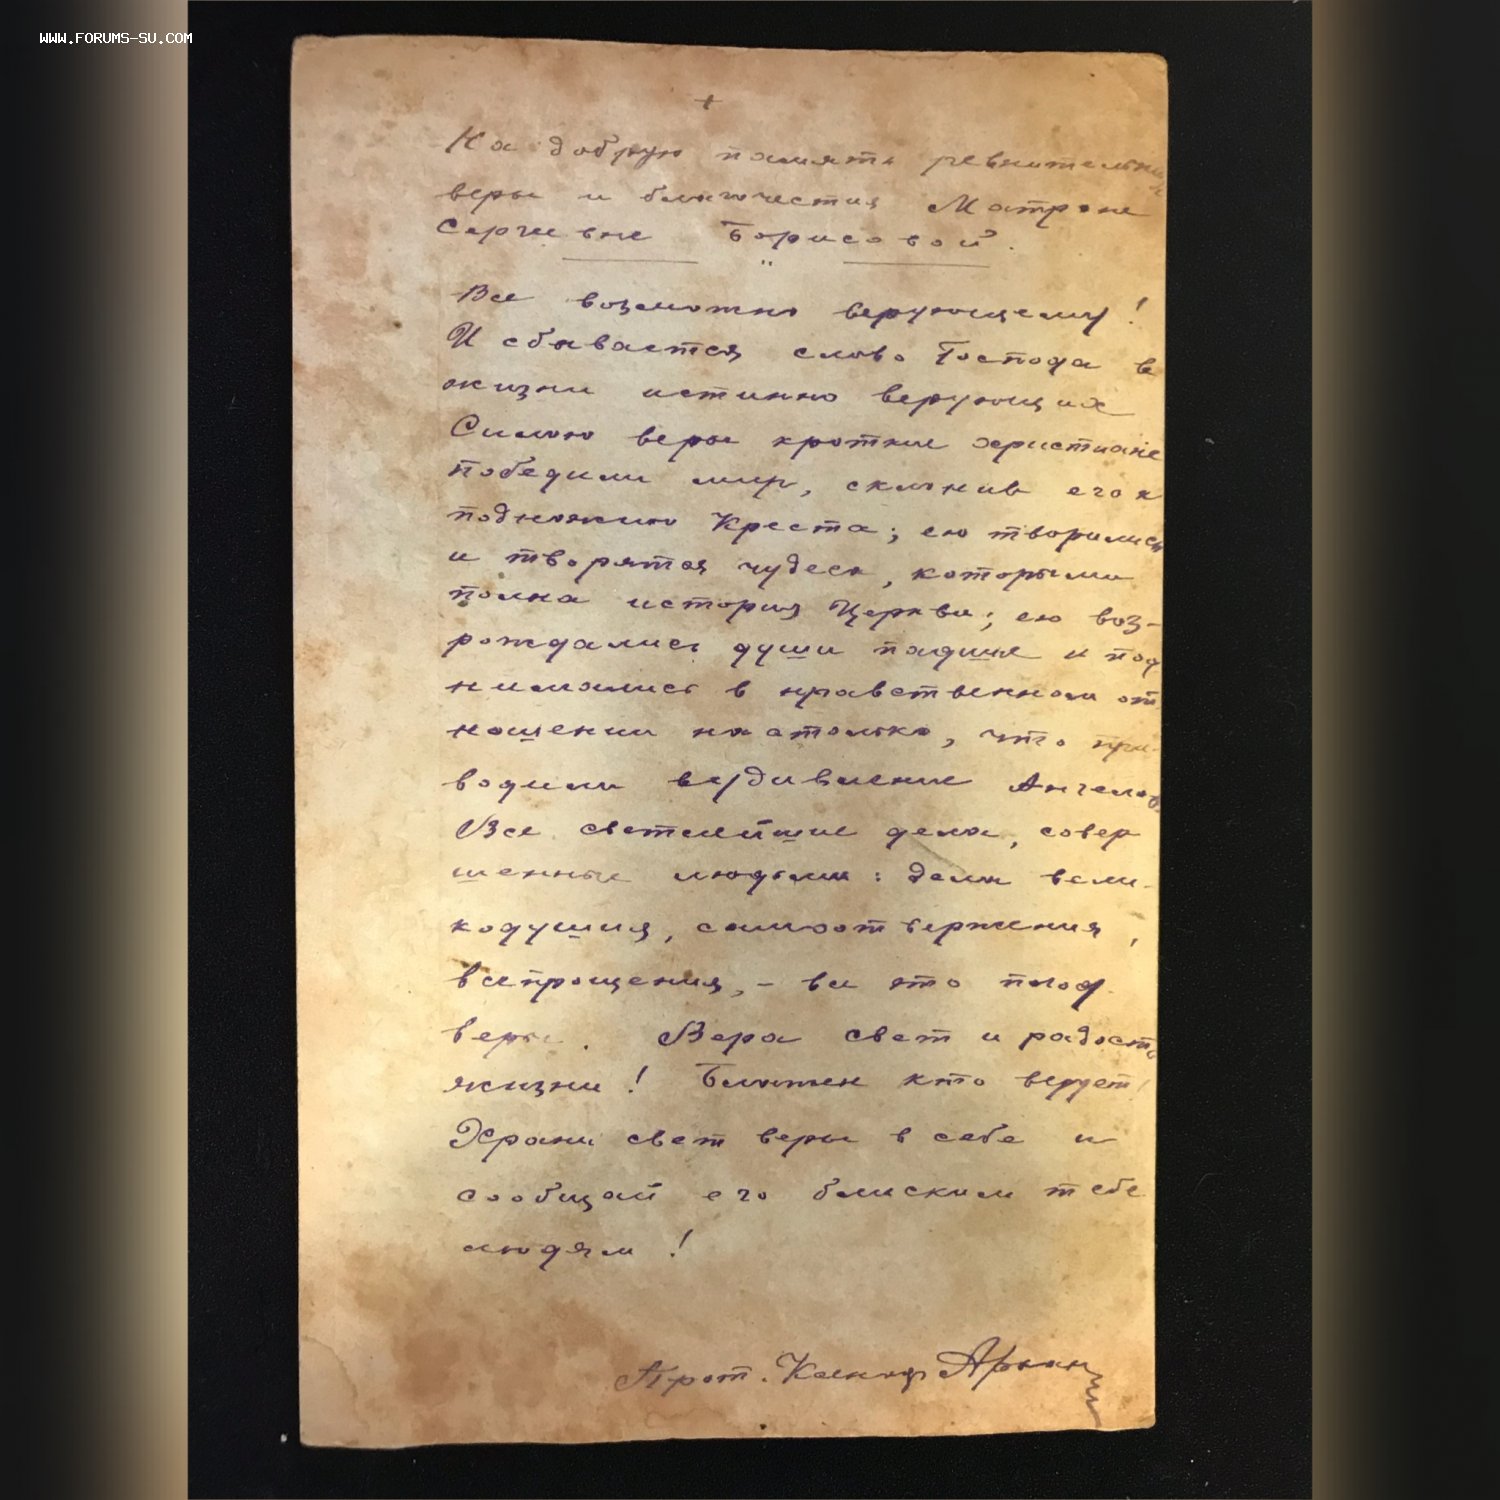 WWW.FORUMS-SU.COM
+
На добрую память ревнительнице
веры и благочестия Матроне
Сергиевне Борисовой.
Все возможно верующему!
И сбывается слово Господа в
жизни истинно верующих
Силою веры кроткие христиане
победили мир, склонив его к
подножию Креста; ею творились
и творятся чудеса, которыми
полна история Церкви; ею воз-
рождались души падшие и под
нимались в нравственном от
ношении настолько, что при-
водили в удивление Ангелов
Все светлейшие дела, совер
шенные людьми: дела вели-
кодушия, самоотвержения,
всепрощения, - все это плод
веры. Вера свет и радость
жизни! Блажен кто верует!
Храни свет веры в себе и
сообщай его блиским тебе
людям!
Прот.